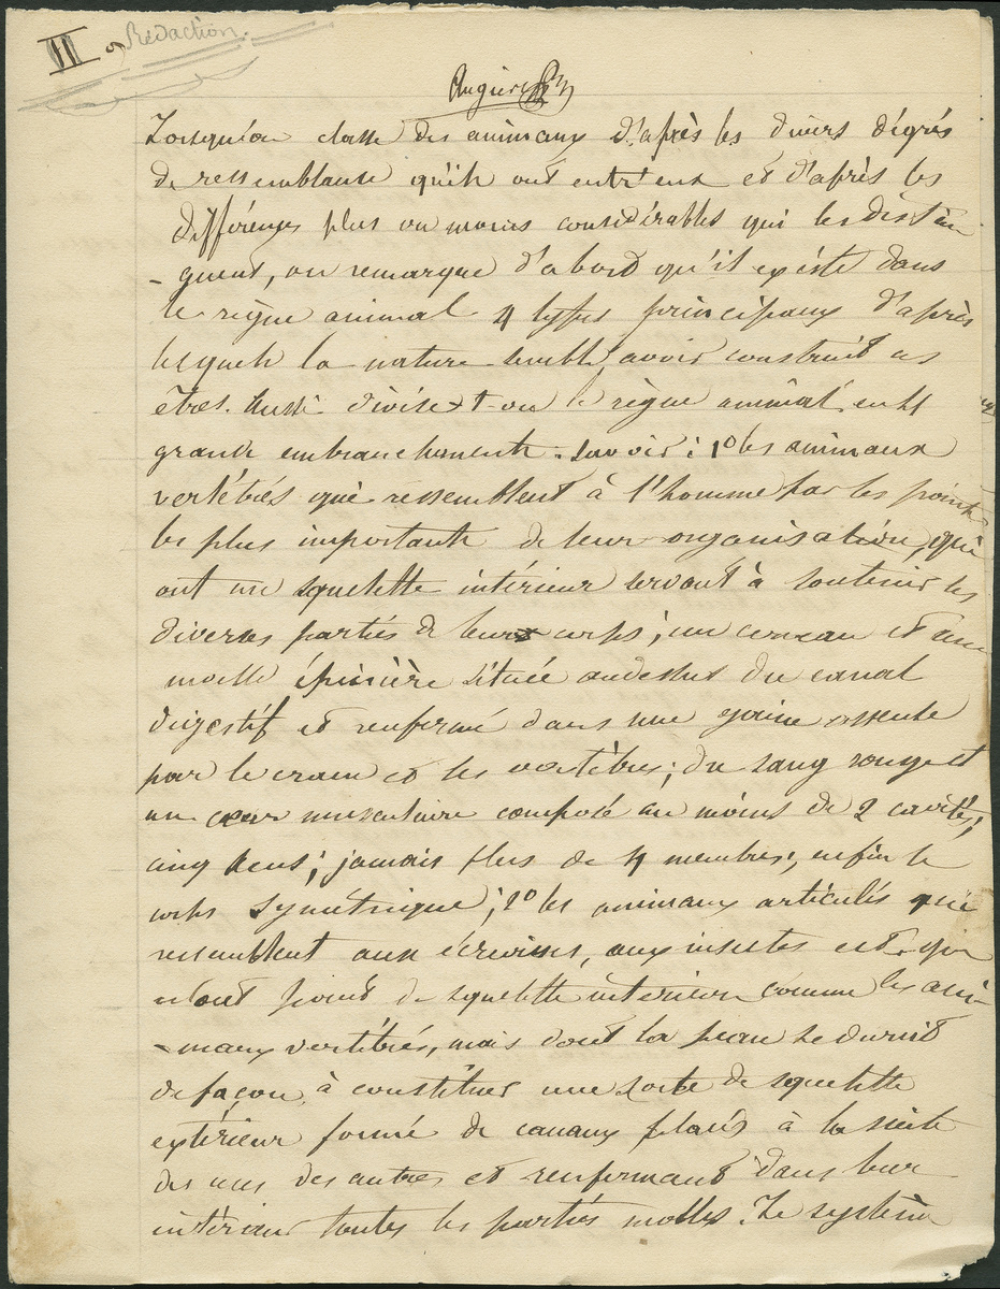 II Rédaction.
Lorsqu'on classe des animaux d'après les divers dégrés
de ressemblance qu'ils ont entr'eux et d'après les
différences plus ou moins considérables qui les distin
-guent, on remarque d'abord qu'il existe dans
le règne animal 4 types principaux d'après
lesquels la nature semble avoir construit ces
êtres. Aussi divise-t-on le règne animal en 4
grands embranchements. savoir: 1º les animaux
vertébrés qui ressemblent à l'homme par les points
les plus importants de leur organisation, qui
ont un squelette intérieur servant à soutenir les
diverses parties de leur corps; un cerveau et une
moelle épinière située audessus du canal
digestif et renfermé dans une gaine
par le crane et les vertèbres; du sang rouge et
un cœur musculaire composé au moins de 2 cavités;
cinq sens; jamais plus de 4 membres; enfin le
corps symétrique; 2º les animaux articulés qui
ressemblent aux écrevisses, aux insectes et qui
n'ont point de squelette intérieur comme les ani-
-maux vertébrés, mais dont la peau se durcit
de façon à constituer une sorte de squelette
extérieur formé de canaux placés à la suite
des uns des autres et renfermant dans leur
intérieur toutes les parties molles. Le système